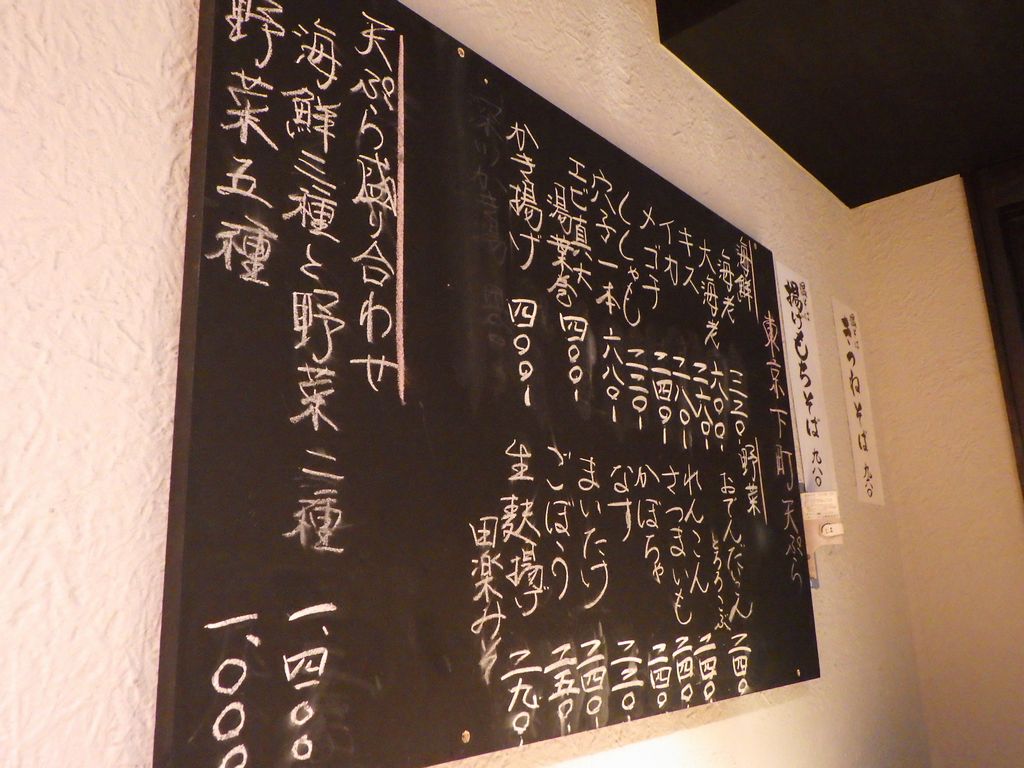 きつねそば 九八〇
揚げもちそば 九八〇
東京下町天ぷら
海鮮
海老 三二〇-
大海老 六〇〇-
キス 二六〇-
イカ 二八〇-
メゴチ 二四〇-
ししゃも 二二〇-
穴子一本 六八〇-
エビ真丈
湯葉包 四〇〇-
かき揚げ 四〇〇-
野菜
おでんだいこん 二四〇-
れんこん 二四〇-
さつまいも 二四〇-
かぼちゃ 二四〇-
なす 二三〇-
まいたけ 二四〇-
ごぼう 二五〇-
生麩揚げ
田楽みそ 二九〇-
天ぷら盛り合わせ
海鮮三種と野菜二種 一、四〇〇
野菜五種 一、〇〇〇